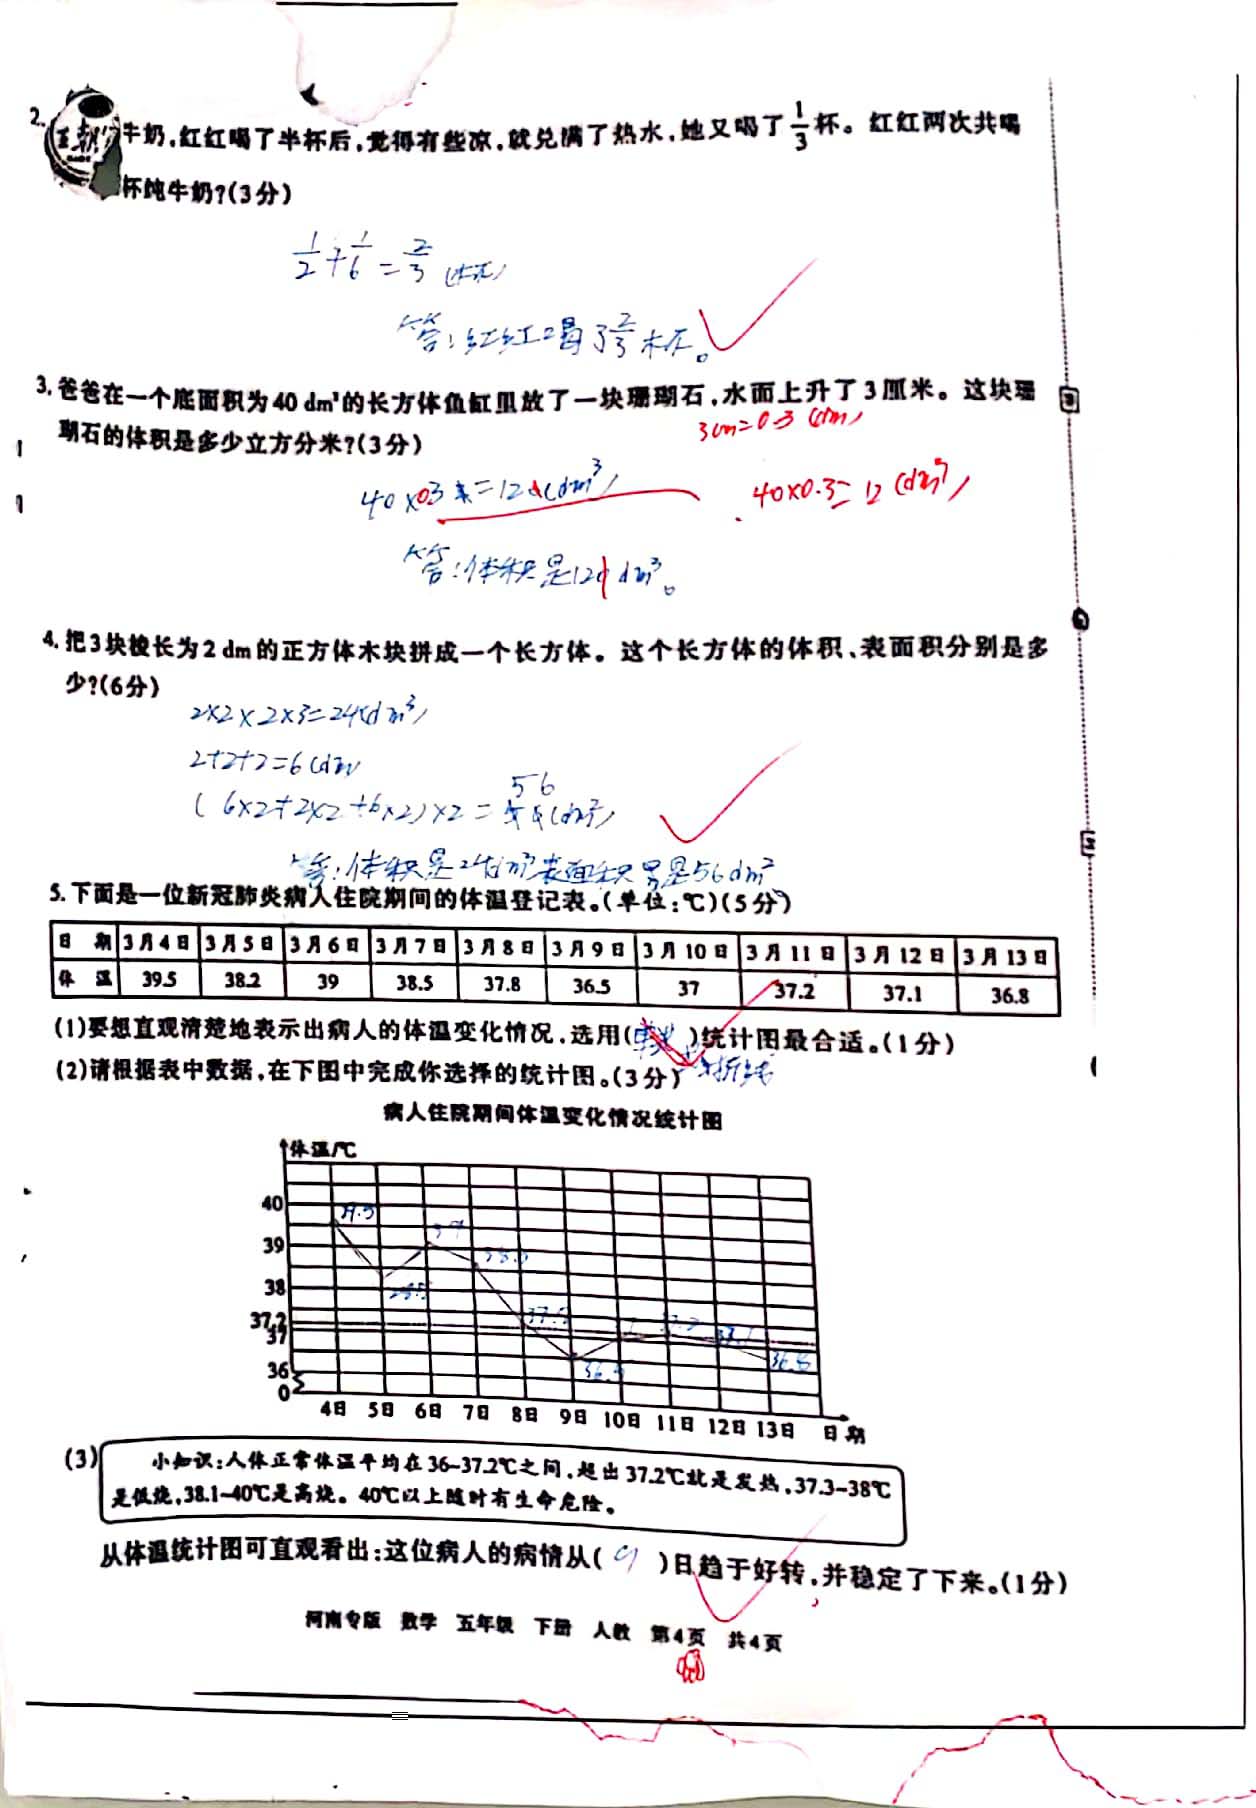 2.
牛奶,红红喝了半杯后,觉得有些凉,就兑满了热水,她又喝了1/3杯。红红两次共喝
杯纯牛奶?(3分)
1/2+1/6=2/3(杯)
答:红红喝了2/3杯。
3.爸爸在一个底面积为40 dm²的长方体鱼缸里放了一块珊瑚石,水面上升了3厘米。这块珊
瑚石的体积是多少立方分米?(3分)
3cm=0.3(dm)
40×03=12(dm³)
40×0.3=12(dm³)
答:体积是12 dm³。
4.把3块棱长为2 dm的正方体木块拼成一个长方体。这个长方体的体积、表面积分别是多
少?(6分)
2×2×2×3=24(dm³)
2+2+2=6(dm)
(6×2+2×2+6×2)×2=56(dm²)
答:体积是24dm³表面积是56dm²
5.下面是一位新冠肺炎病人住院期间的体温登记表。(单位:℃)(5分)
日期 3月4日 3月5日 3月6日 3月7日 3月8日 3月9日 3月10日 3月11日 3月12日 3月13日
体温 39.5 38.2 39 38.5 37.8 36.5 37 37.2 37.1 36.8
(1)要想直观清楚地表示出病人的体温变化情况,选用( )统计图最合适。(1分)
折线
(2)请根据表中数据,在下图中完成你选择的统计图。(3分)
病人住院期间体温变化情况统计图
体温/℃
40
39
38
37.2
37
36
0
39
36.5
37.1
36.8
4日 5日 6日 7日 8日 9日 10日 11日 12日 13日 日期
(3)
小知识:人体正常体温平均在36~37.2℃之间,超出37.2℃就是发热,37.3~38℃
是低烧,38.1~40℃是高烧。40℃以上随时有生命危险。
从体温统计图可直观看出:这位病人的病情从( 9 )日趋于好转,并稳定了下来。(1分)
河南专版 数学 五年级 下册 人教 第4页 共4页